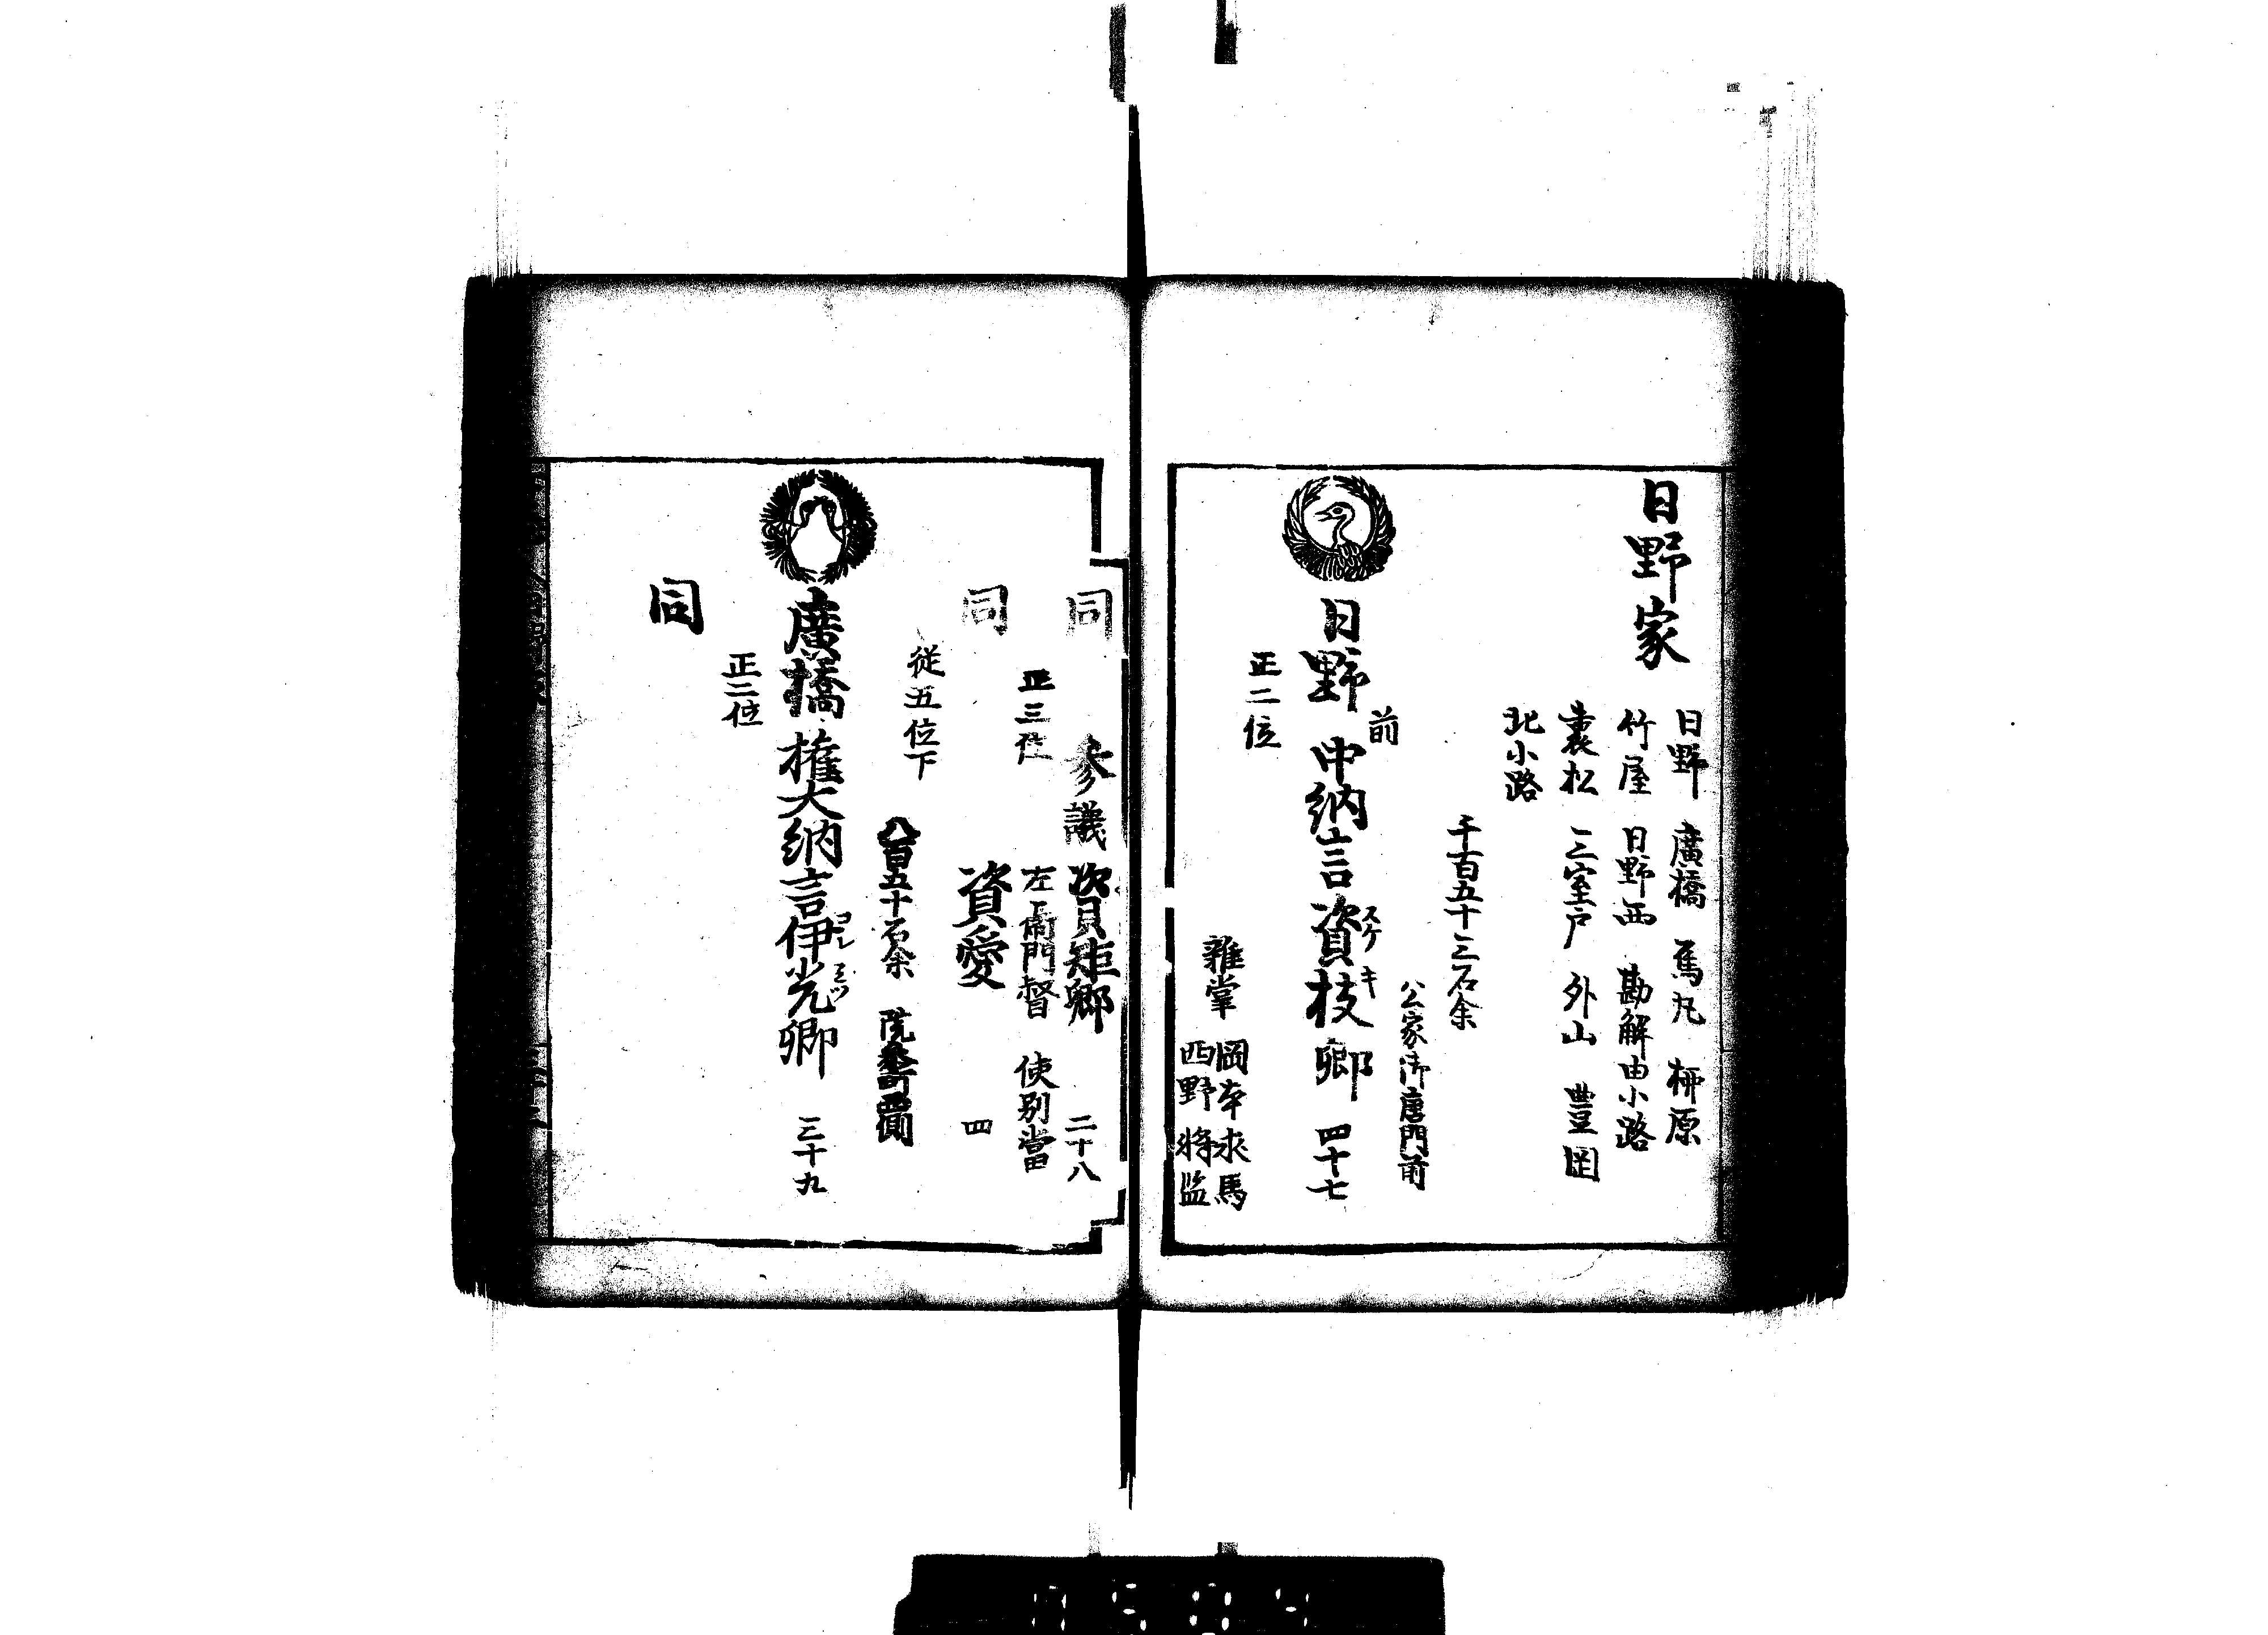 日野家
日野 廣橋 烏丸 柳原
竹屋 日野西 勘解由小路
裏松 三室戸 外山 豊岡
北小路
千百五十三石余
公家御唐門前
日野 前中納言資枝卿 四十七
スケ キ
正二位
雜掌 岡本求馬
西野将監
同 參議 資矩卿 二十八
正三位 左衛門督 使別當
同 資愛 四
従五位下
八百五十石余 院参町西側
廣橋 權大納言伊光卿 三十九
コレ ミツ
正二位
同